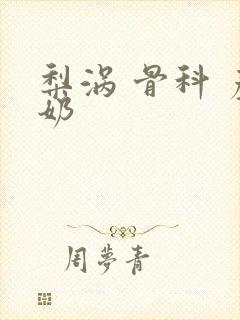 梨涡 骨科
奶
周夢青